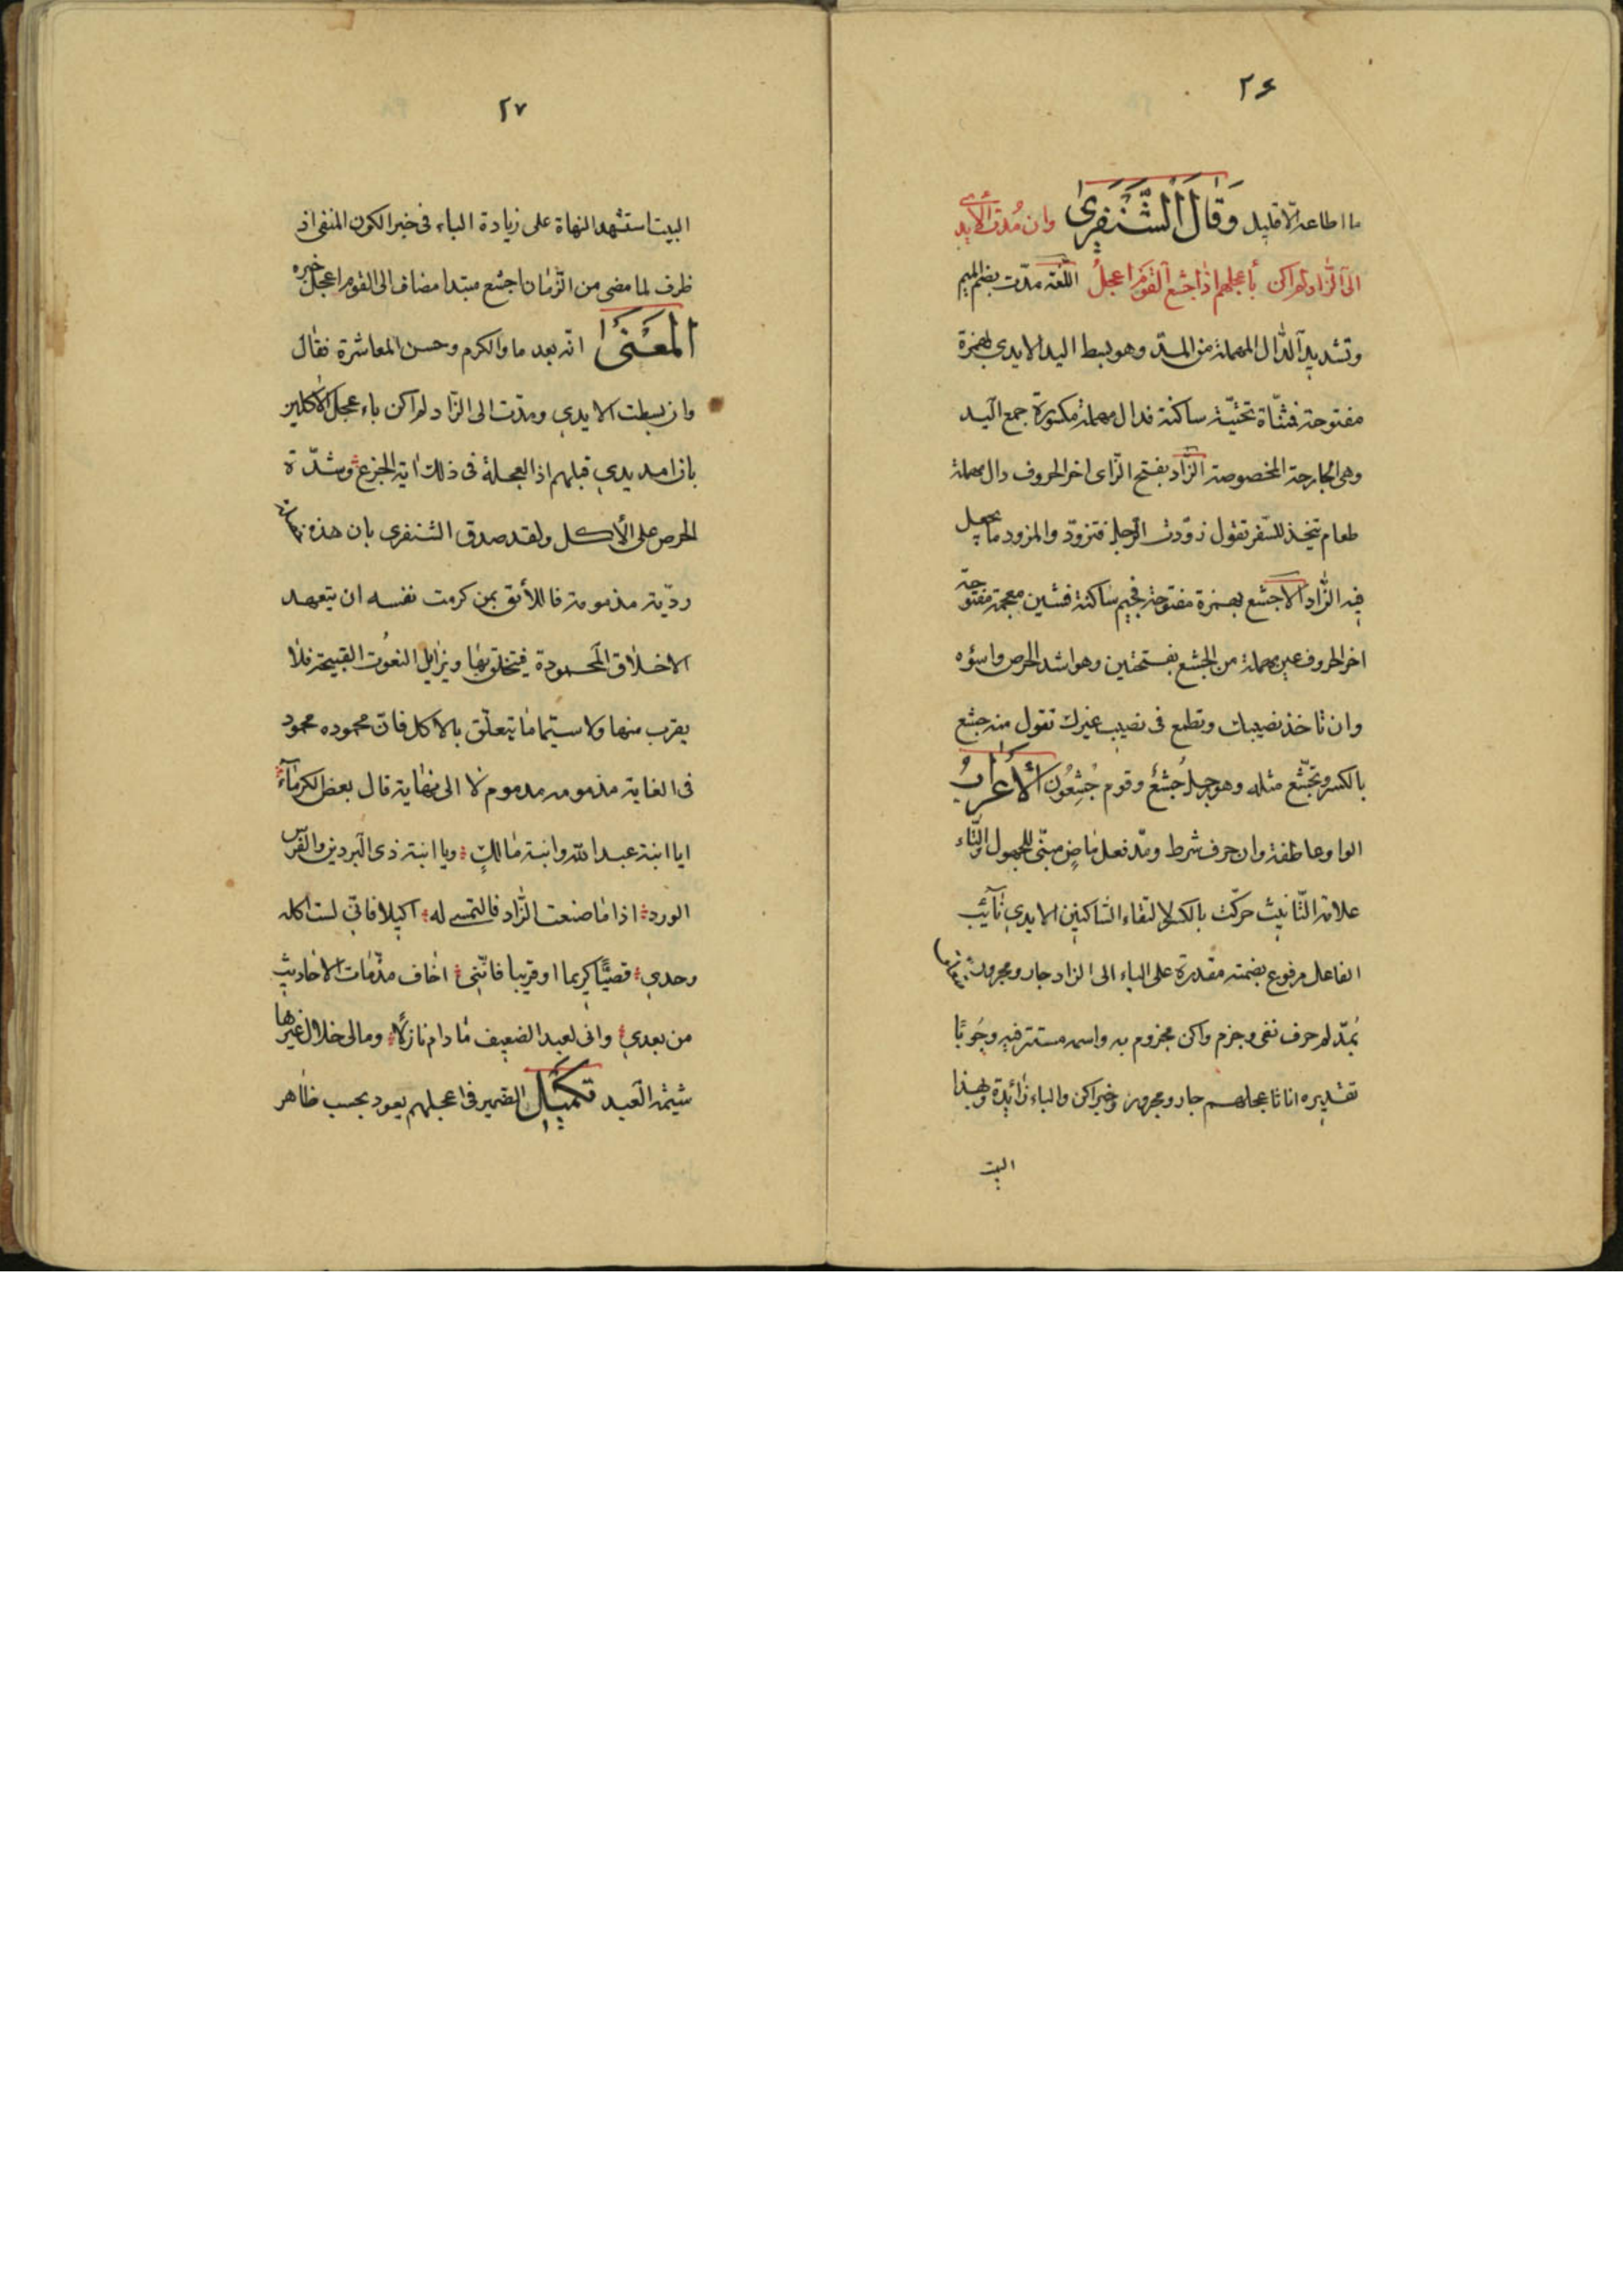 ٢٦
ما اطاعه الّا قليل وَقَالَ الشَّنْفَرىٰ وان مُدّت الأيدى
الى الزّاد لم اكن بأعجلهم اذ اجشع القوم اعجلُ اللّغة مدّت بضم الميم
وتشديد الدّال المهملة من المدّ وهو بسط اليد الايدى بهمزة
مفتوحة فمثنّاة تحتيّة ساكنة فدال مهملة مكسورة جمع اليد
وهى الجارحة المخصوصة الزّاد بفتح الزّاى اخر الحروف دال مهملة
طعام يتخذ للسّفر تقول زوّدت الرّجل فتزوّد والمزود ما يجعل
فيه الزّاد الاجشع بهمزة مفتوحة فجيم ساكنة فشين معجمة مفتوحة
اخر الحروف عين مهملة من الجشع بفتحتين وهو اشد الحرص واسؤه
وان تاخذ نصيبك وتطمع فى نصيب غيرك تقول منه جشع
بالكسر وتجشّع مثله وهو رجل جَشِعٌ وقوم جَشِعُون الأعرابُ
الواو عاطفة وان حرف شرط ومدّ فعل ماضٍ مبنّى للمجهول والتّاء
علامة التّانيث حرّكت بالكسر لالتقاء السّاكنين الايدى نآئب
الفاعل مرفوع بضمّة مقدرة على الياء الى الزاد جار ومجرور
بمدّ لم حرف نفى وجزم واكن مجزوم به واسمه مستتر فيه وجُوبًا
تقديره انا باعجلهم جار ومجرور وخبر اكن والباء زائدة وبهذا
البيت
٢٧
البيت استشهد النحاة على زيادة الباء فى خبر الكون المنفى اذ
ظرف لما مضى من الزّمان اجشع مبتدا مضاف الى القوم اعجل خبره
المَعْنىٰ انّه بعد ما والكرم وحسن المعاشرة فقال
وان بسطت الايدى ومدّت الى الزّاد لم اكن باءعجل الأكلين
بان امد يدى قبلهم اذ العجلة فى ذلك اية الجزع وشدّة
الحرص على الأكل ولقد صدق الشنفرى بان هذه
رديّة مذمومة فاللأئق بمن كرمت نفسه ان يتعهد
الاخلاق المحمودة فيتخلق بها ويزايل النعُوت القبيحة فلا
يقرب منها ولا سيّما ما يتعلّق بالاكل فانّ محموده محمود
فى الغاية مذمومه مدموم لا الى نهاية قال بعض الكرماء
ايا ابنة عبد الله وابنة مالكٍ ويا ابنة ذى البردين والفرس
الورد اذا ما صنعت الزّاد فالتمسى له اكيلا فانّى لست اكله
وحدى قصيًّا كريما او قريبا فانّنى اخاف مذمّات الاحاديث
من بعدى وانى لعبد الضعيف ما دام نازلًا ومالى خلال غيرها
شيمة العبد تكميل الضمير فى اعجلهم يعود بحسب ظاهر